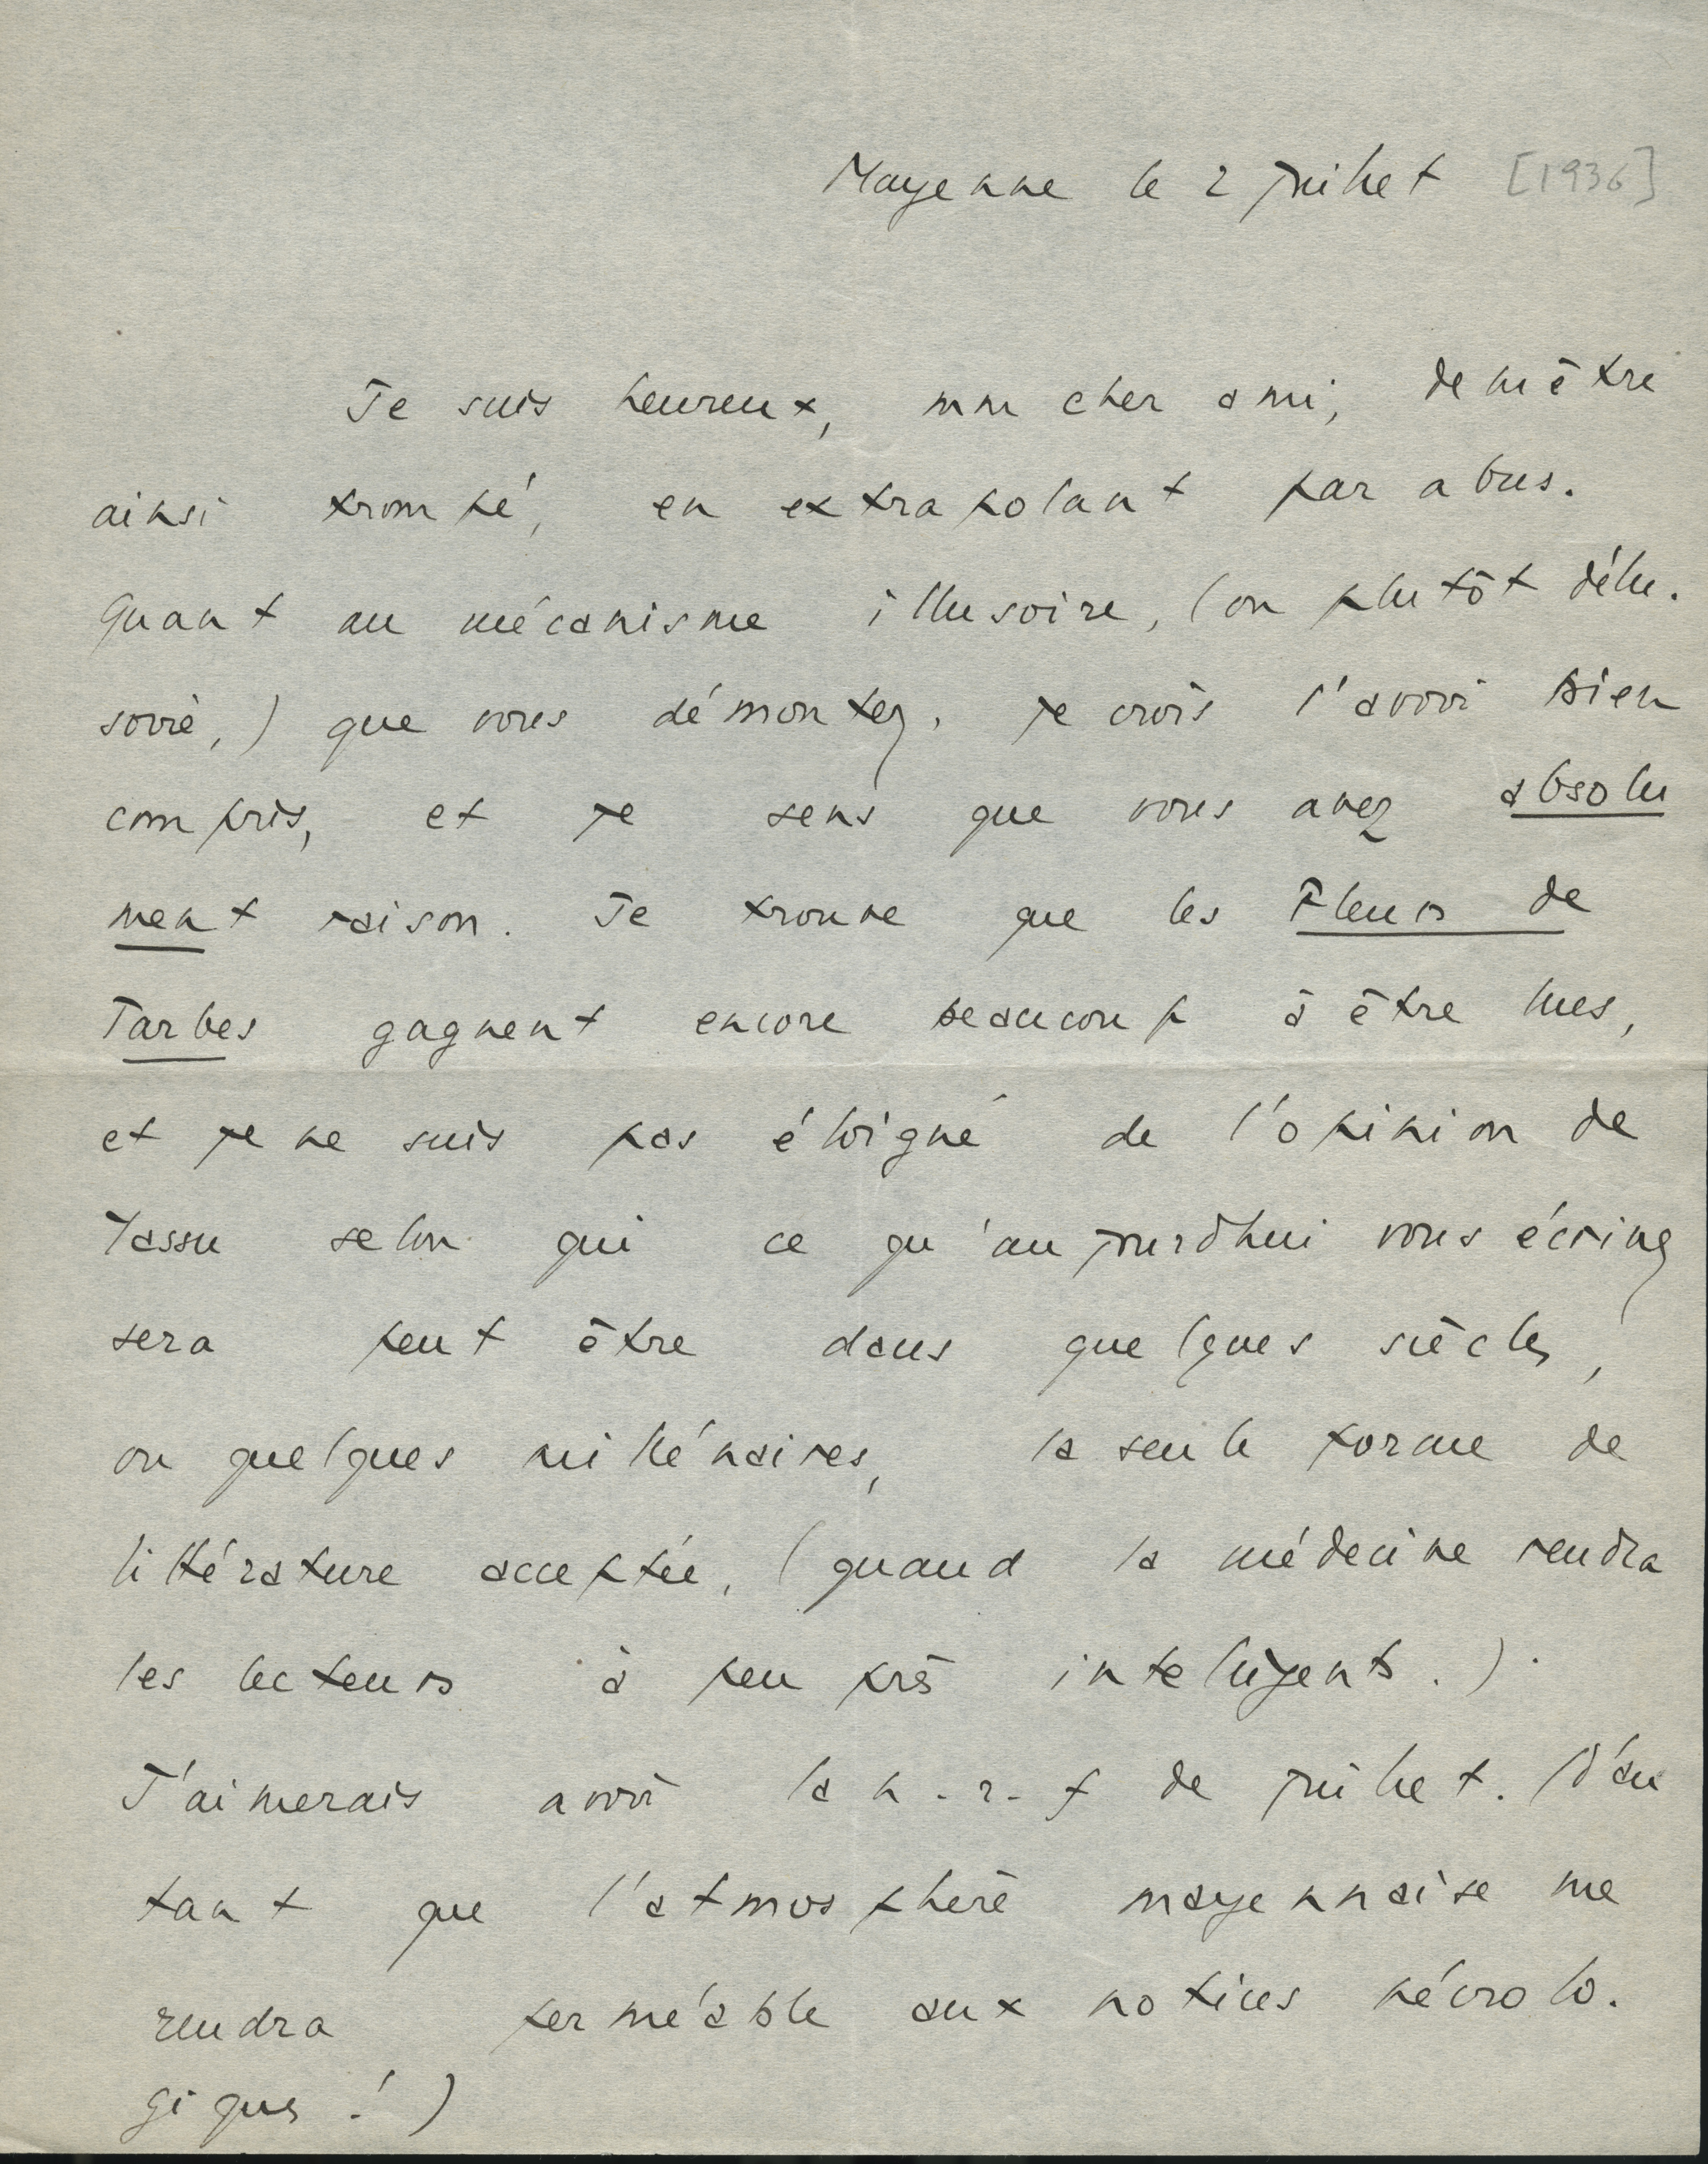 Mayenne le 2 juillet [1936]
Je suis heureux, mon cher ami, de m'être
ainsi trompé, en extrapolant par abus.
Quant au mécanisme illusoire, (ou plutôt délu-
soire,) que vous démontez, je crois l'avoir bien
compris, et je sens que vous avez absolu
ment raison. Je trouve que les Fleurs de
Tarbes gagnent encore beaucoup à être lues,
et je ne suis pas éloigné de l'opinion de
Tassu selon qui ce qu'aujourdhui vous écrivez
sera peut être dans quelques siècles,
ou quelques millénaires, la seule forme de
littérature acceptée, (quand la médecine rendra
les lecteurs à peu près intelligents.).
J'aimerais avoir la n.r.f de juillet. (D'au
tant que l'atmosphère mayennaise me
rendra perméable aux notices nécrolo-
giques !)